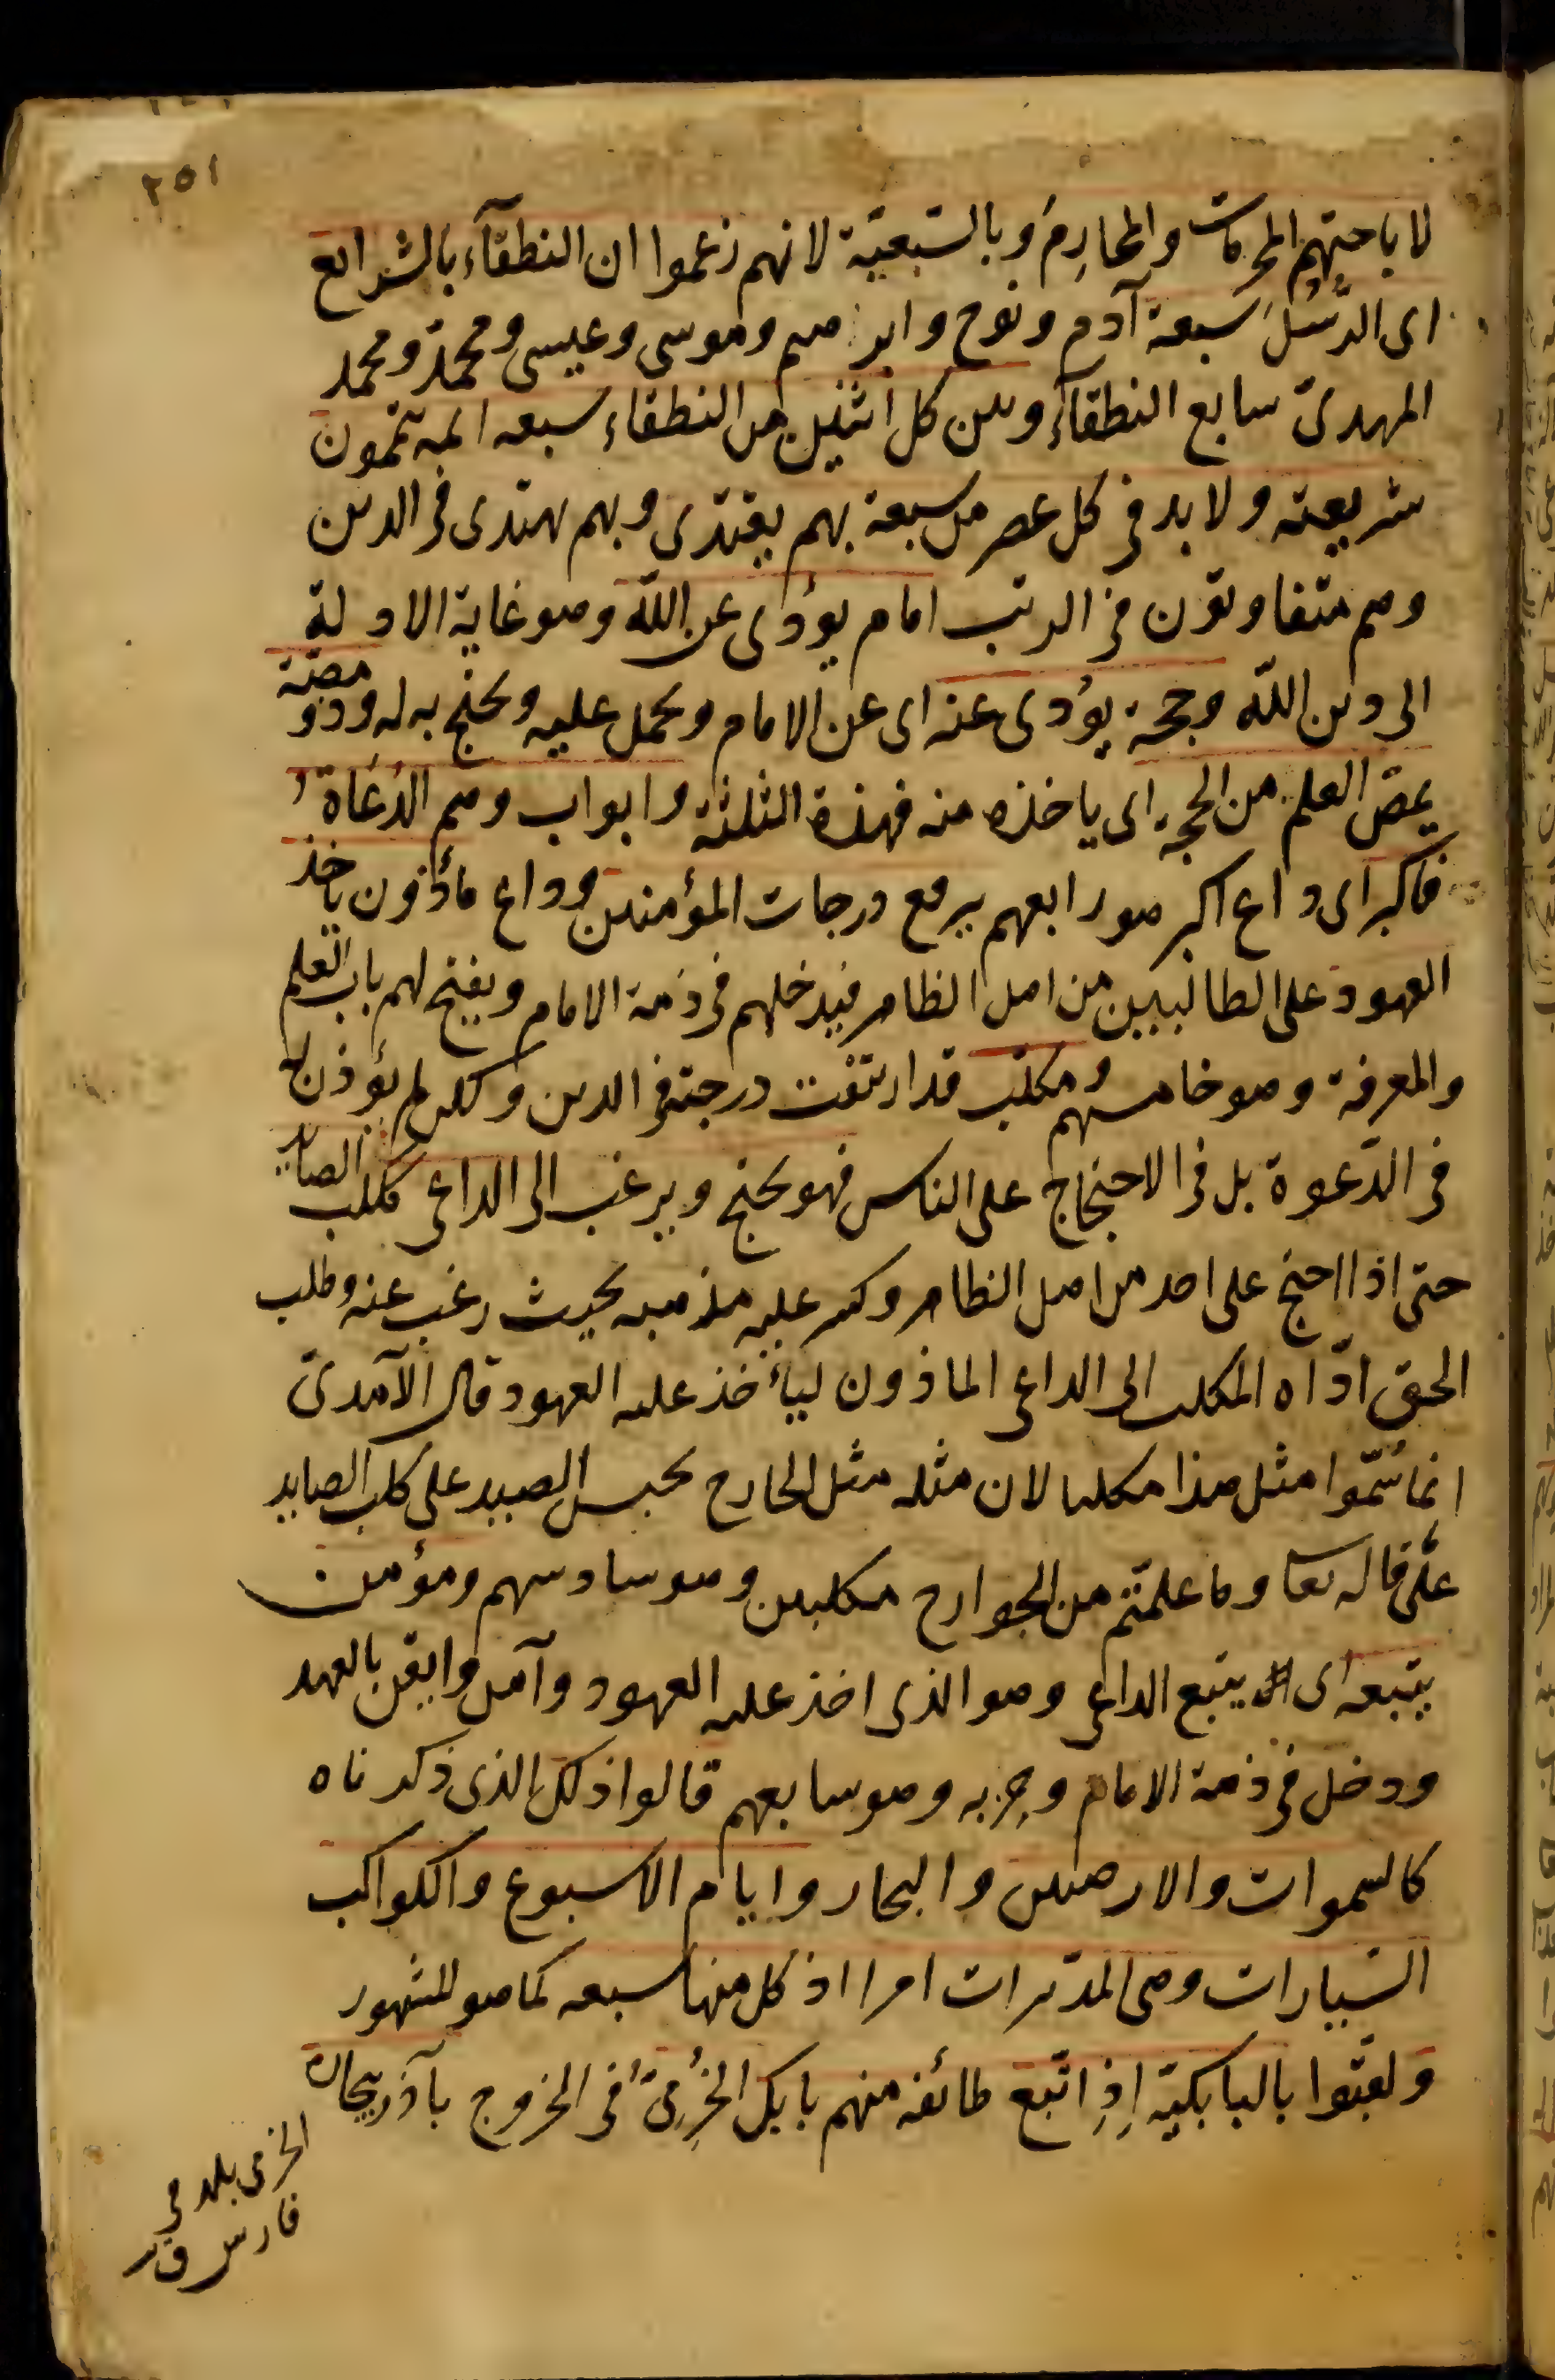 ٢٥١
لاباحتهم المحرمات والمحارم وبالسّبعيّة لانهم زعموا ان النطقآء بالشرايع
اى الرُّسُل سبعة آدم ونوح وابرهيم وموسى وعيسى ومحمّد ومحمد
المهدىّ سابع النطقآء وبين كل اثنين من النطقاء سبعه ائمه يتممون
شريعته ولا بد فى كل عصر من سبعة بهم يقتدى وبهم يهتدى فى الدين
وهم متفاوتون فى الرتب امام يؤدى عن اللّه وهو غاية الادلة
الى دين اللّه وحجة يؤدى عنه اى عن الامام ويحمل عليه ويحتج به له وذو مصّة
يمصّ العلم من الحجة اى ياخذه منه فهذه الثلثة وابواب وهم الدُعَاة
فاكبر اى داع اكبر هو رابعهم يرفع درجات المؤمنين وداع مأذون ياخذ
العهود على الطالبيين من اهل الظاهر فيدخلهم فى ذمة الامام ويفتح لهم باب العلم
والمعرفة وهو خامسهم ومكلب قد ارتفعت درجته فى الدين ولكن لم يؤذن له
فى الدّعوة بل فى الاحتجاج على الناس فهو يحتج ويرغب الى الداعى ككلب الصايد
حتى اذا احتج على احد من اهل الظاهر وكسر عليه مذهبه بحيث رغب عنه وطلب
الحق ادّاه المكلب الى الداعى الماذون ليأخذ عليه العهود قال الآمدىّ
انما سُمّوا مثل هذا مكلبا لان مثله مثل الجارح يحبس الصيد على كلب الصايد
على ما قال تعا وما علمتم من الجوارح مكلبين وهو سادسهم ومؤمن
يتبعه اى يتبع الداعى وهو الذى اخذ عليه العهود وآمن وايقن بالعهد
ودخل فى ذمة الامام وحزبه وهو سابعهم قالوا ذلك الذى ذكرناه
كالسموات والارضين والبحار وايام الاسبوع والكواكب
السّيارات وهى المدبرات امرا اذ كل منها سبعه كما هو المشهور
ولقبّوا بالبابكية اِذِ اتبع طائفه منهم بابك الخُرَّمِىّ فى الخروج بآذربيجان
الخرمى بلد فى
فارس ق